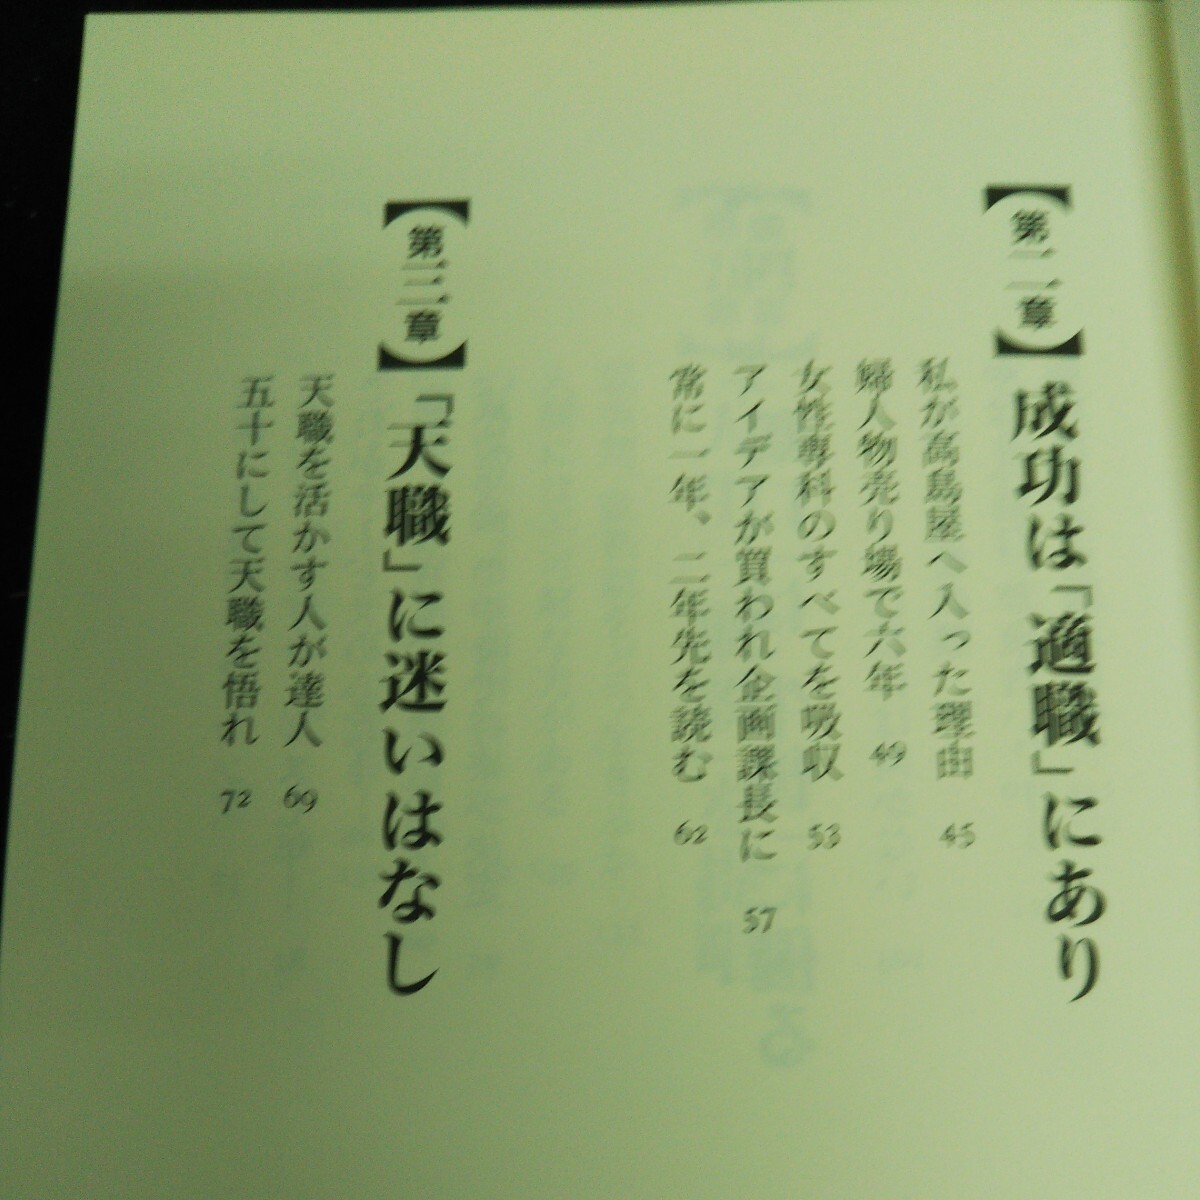 【第二章】成功は「適職」にあり
私が高島屋へ入った理由 45
婦人物売り場で六年 49
女性専科のすべてを吸収 53
アイデアが買われ企画課長に 57
常に一年、二年先を読む 62
【第三章】「天職」に迷いはなし
天職を活かす人が達人 69
五十にして天職を悟れ 72